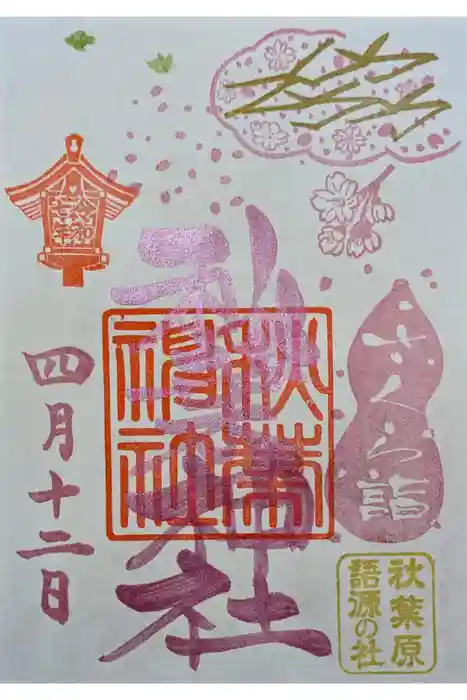 秋葉神社
秋葉神社
さくら詣
秋葉原
語源の社
令和
七年
四月十二日